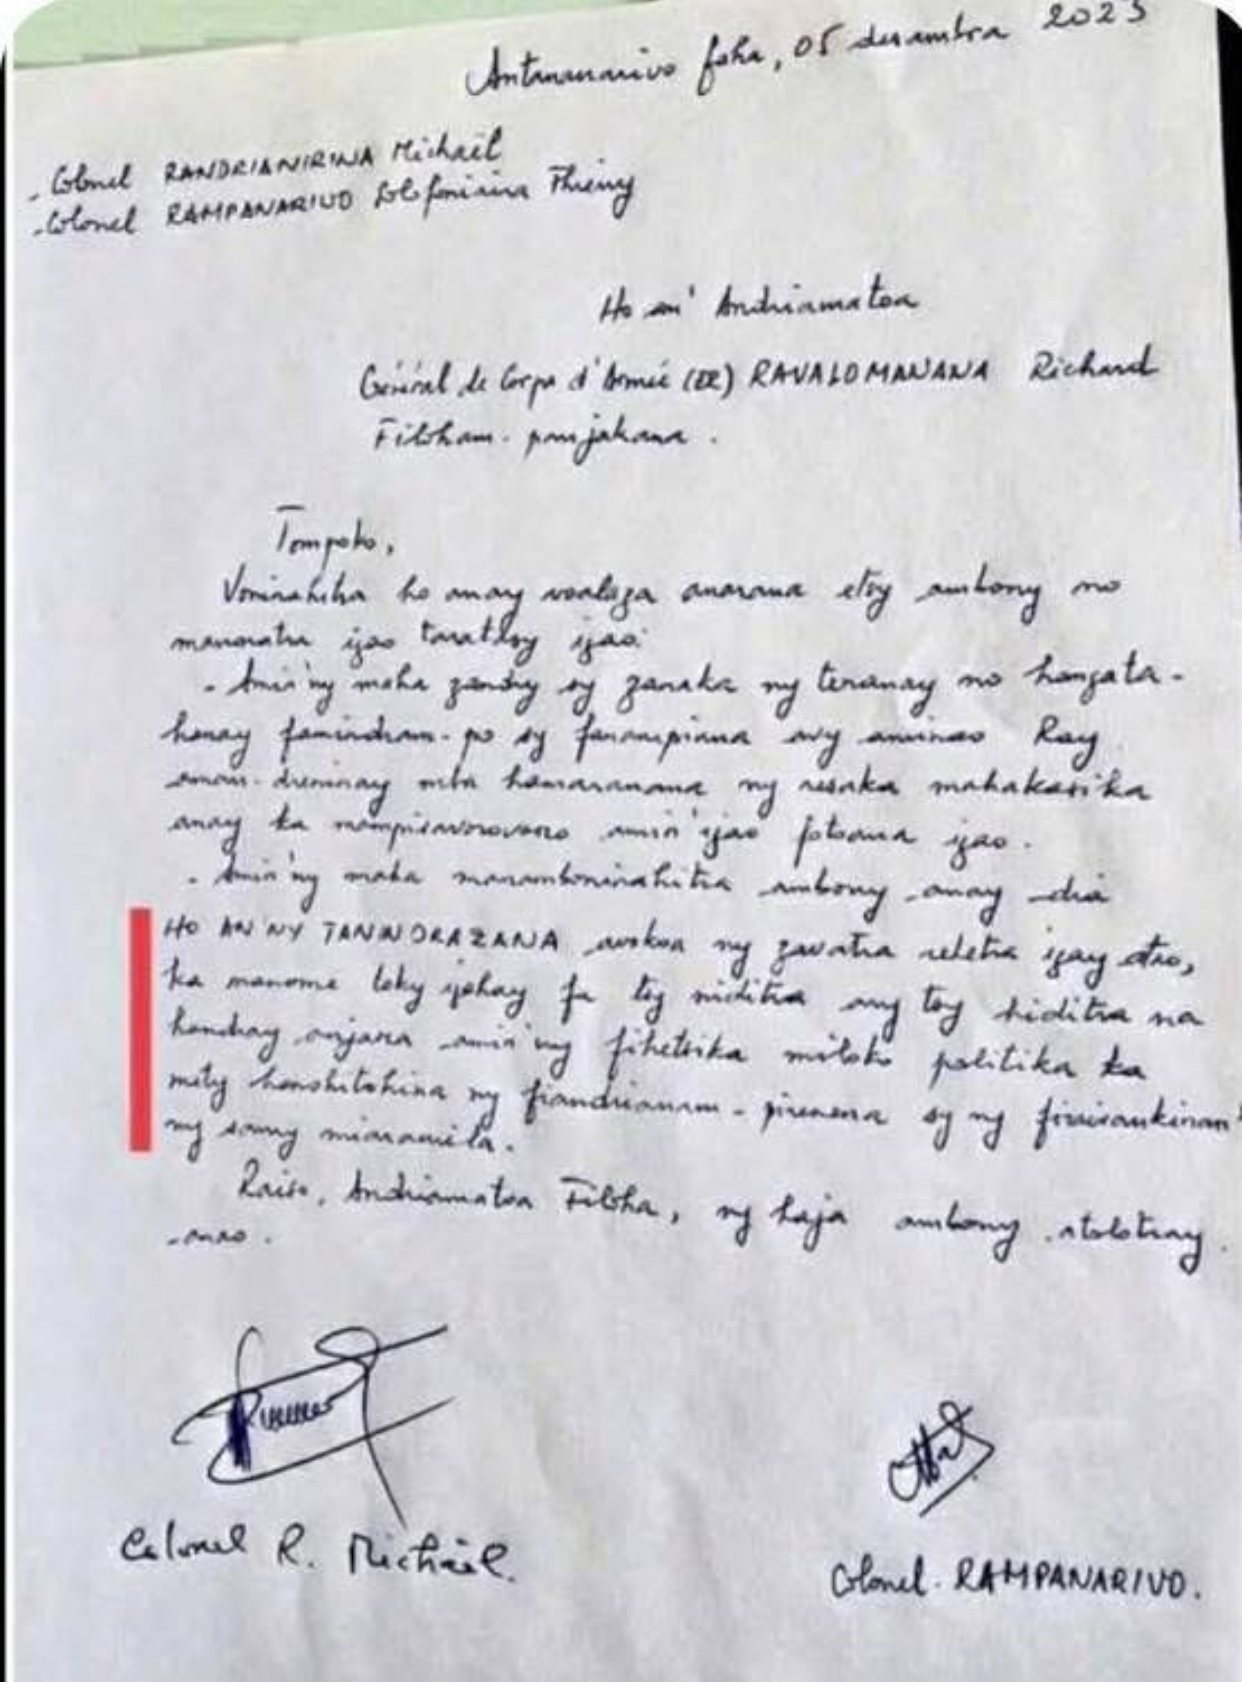 Antananarivo faha, 05 desambra 2023
- Colonel RANDRIANIRINA Michaël
- Colonel RAMPANARIVO Lolofoniaina Thierry
Ho an' Andriamatoa
Général de Corps d'Armée (ER) RAVALOMANANA Richard
Filoham-panjakana.
Tompoko,
Voninahitra ho anay voalaza anarana etsy ambony no
manoratra izao taratasy izao:
- Amin'ny maha zandry sy zanaka ny tenanay no hangata-
hanay famindram-po sy fanampiana avy aminao Ray
aman-dreninay mba hamaranana ny resaka mahakasika
anay ka mampisavorovoro amin'izao fotoana izao.
- Amin'ny maha manamboninahitra ambony anay dia
HO AN'NY TANINDRAZANA avokoa ny zavatra rehetra izay atao,
ka manome toky izahay fa tsy niditra ary tsy hiditra na
handray anjara amin'ny fihetsika miloko politika ka
mety hanohitohina ny fiandrianam-pirenena sy ny firaisankinan'
ny samy miaramila.
Raiso, Andriamatoa Filoha, ny haja ambony atolotray
anao.
Colonel R. Michaël.
Colonel RAMPANARIVO.